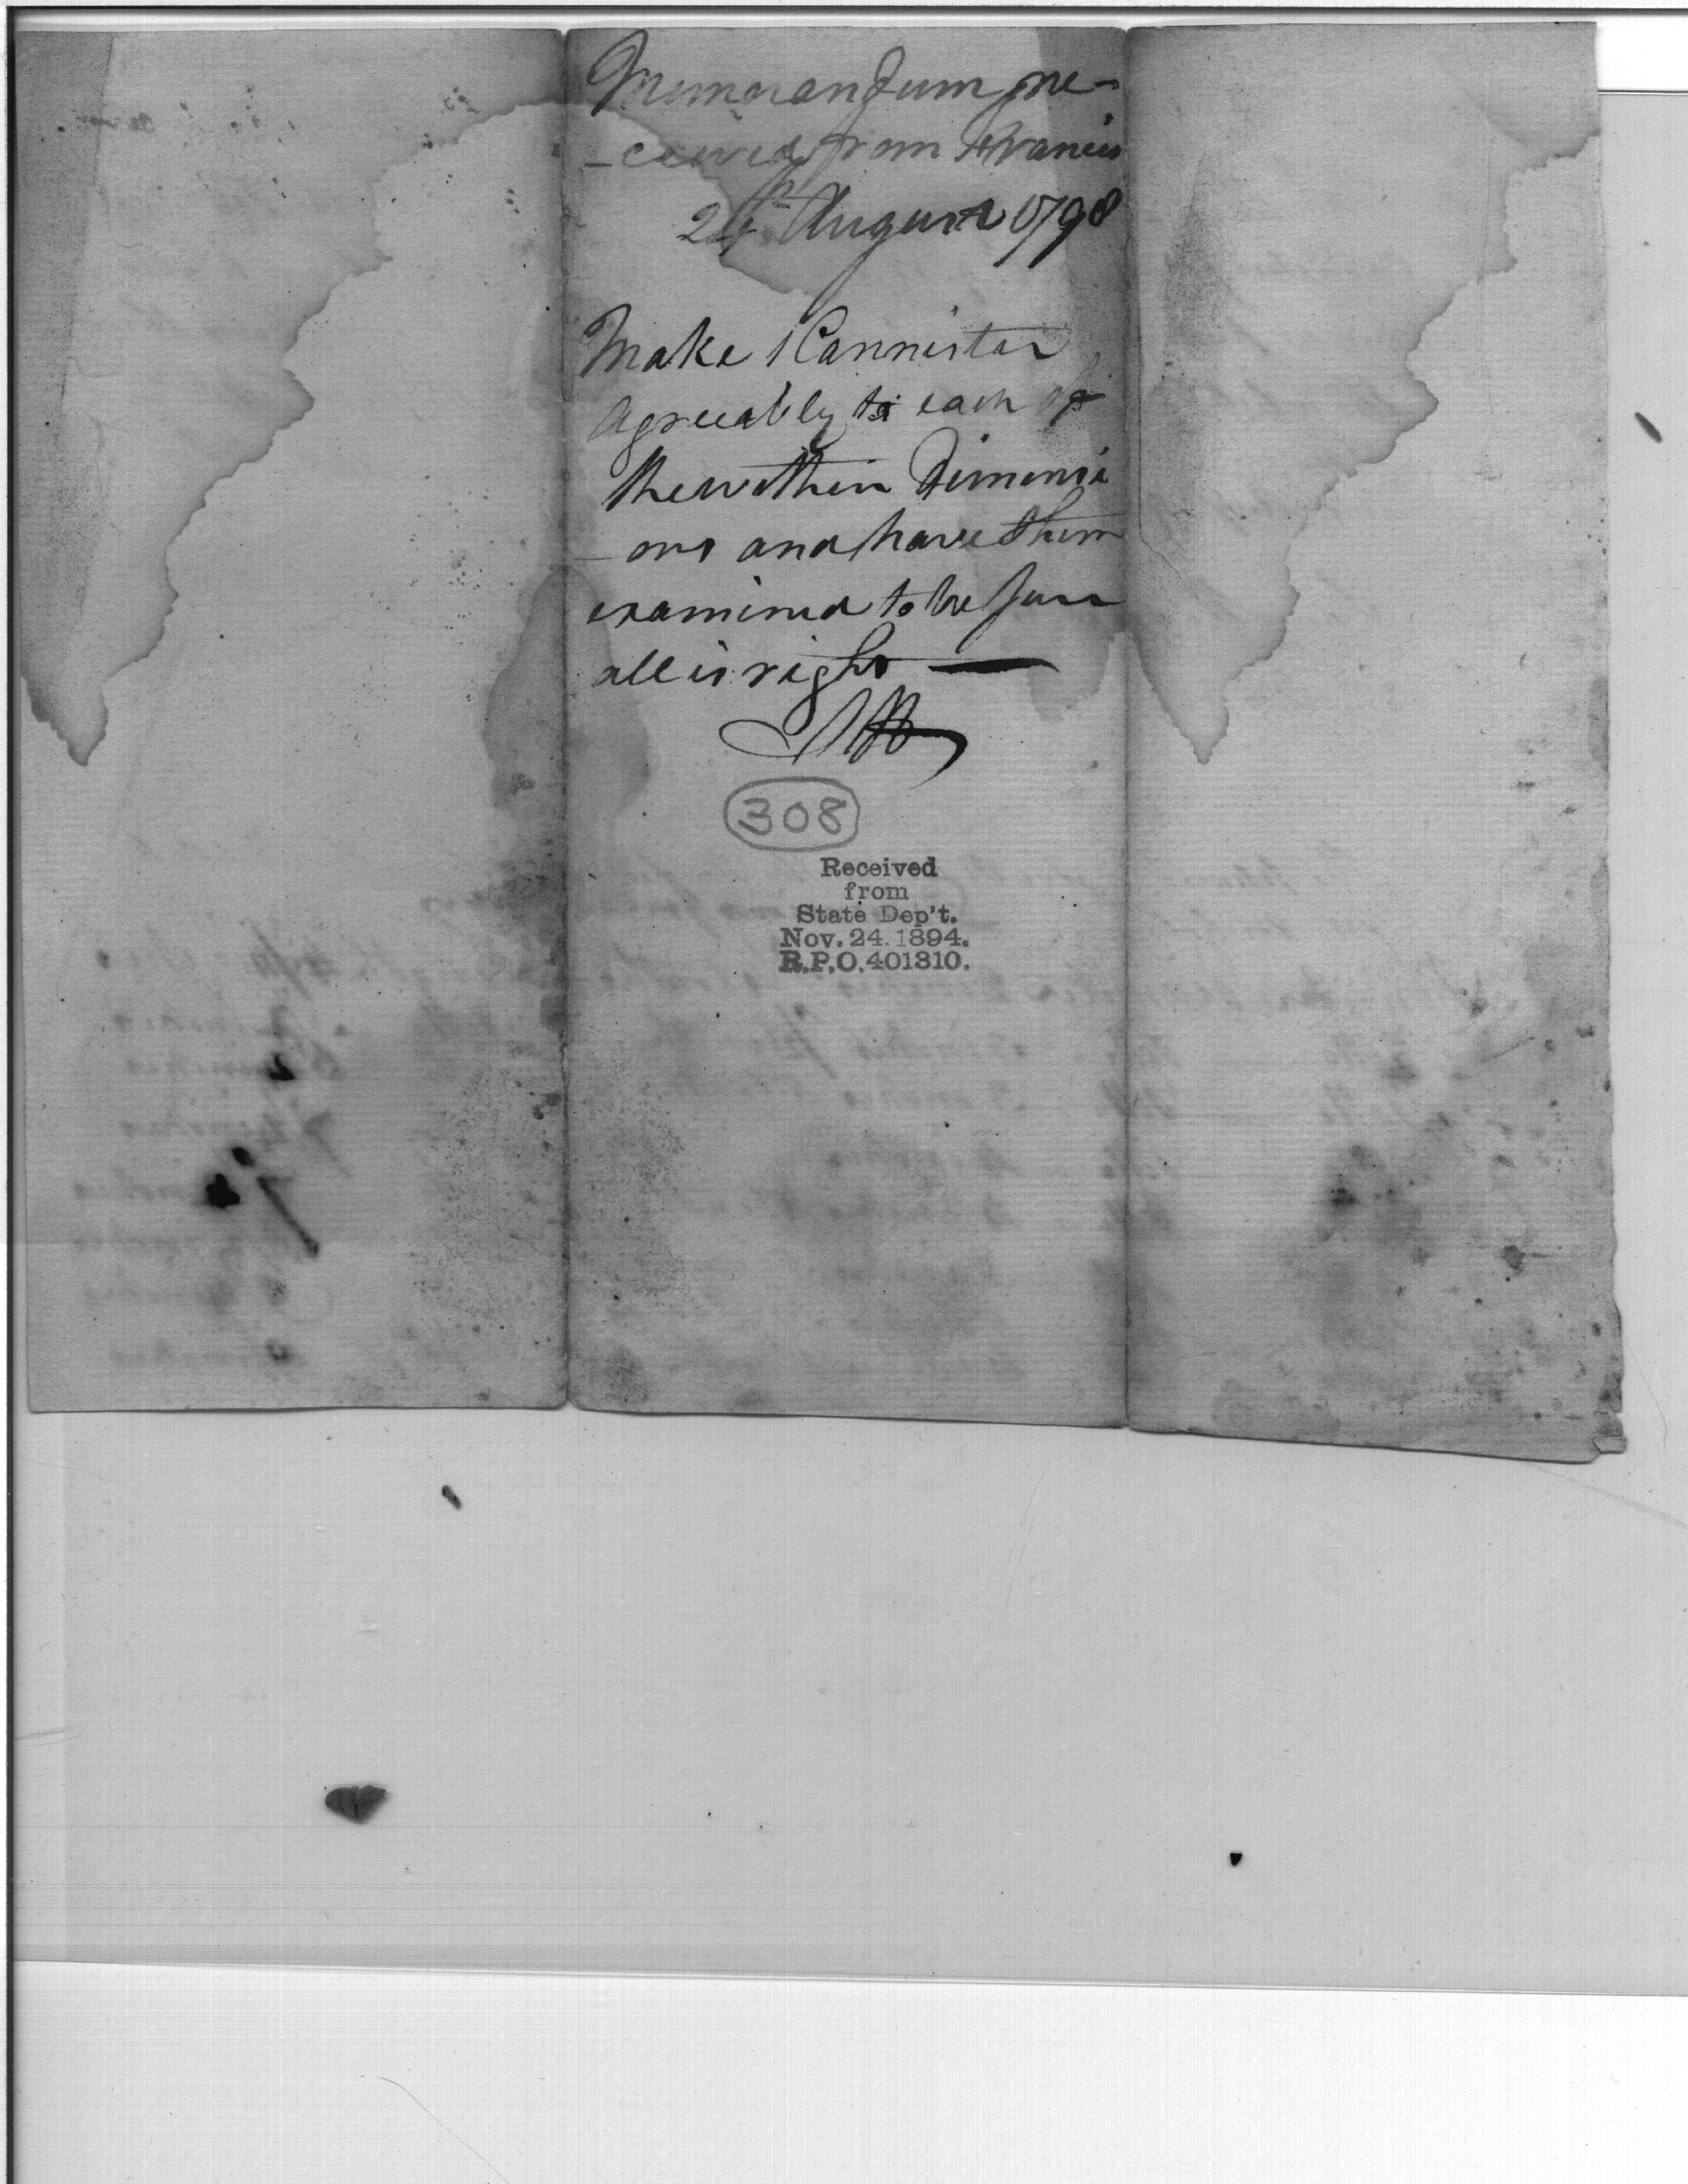 Memorandum re-
-ceived from Francis
24th August 1798
Make 1 Cannister
agreeably to each of
the within Dimensi
-ons and have them
examined to be sure
all is right —
308
Received
from
State Dep't.
Nov. 24. 1894.
R.P.O. 401310.